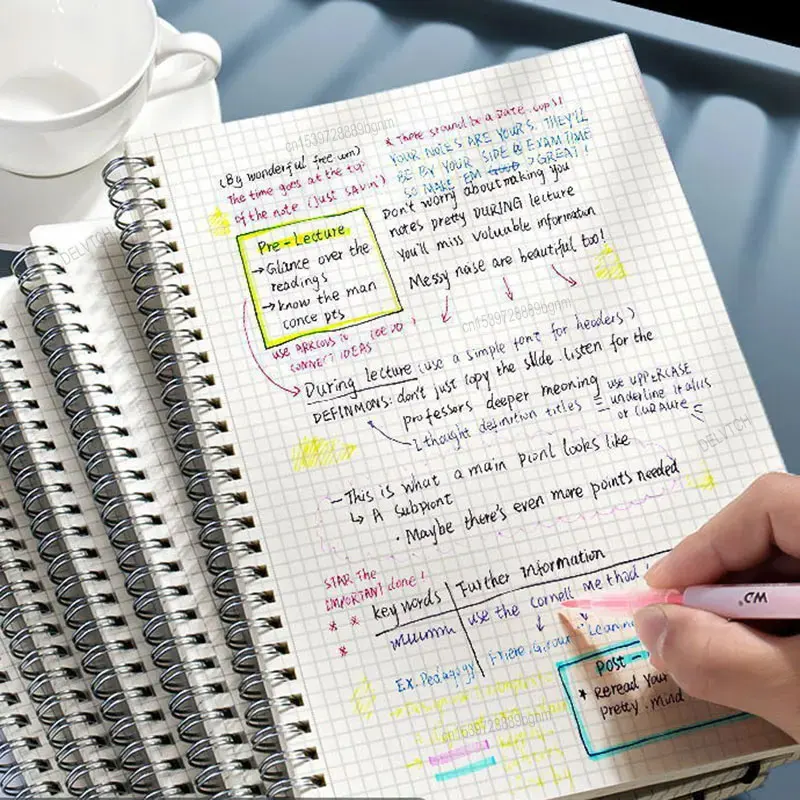 (By wonderful free um)
The time goes at the top
of the note (just savin')
* There should be a DATE, oops!
YOUR NOTES ARE YOURS. THEY'LL
BE BY YOUR SIDE @ EXAM TIME
SO MAKE EM GREAT!
Don't worry about making you
notes pretty DURING lecture
You'll miss valuable information
Messy noise are beautiful too!
Pre-Lecture
→ Glance over the
readings
→ know the man
conce pts
USE ARROWS TO
CONNECT IDEAS
During lecture (use a simple font for headers)
DEFINMONS: don't just copy the slide. listen for the
professors deeper meoning
I thought definition titles = use UPPERCASE
underline italics
or CURAURE
- This is what a main pionl looks like
↳ A subpiont
· Maybe there's even more points needed
STAR The
IMPORTANT done!
* *
*
key words
Further information
use the cornell me thad!
Ex. Pedagogy
Leanin
POST -
* Reread Your
pretty. mind
cn1539728889bgnm
cn1539728889bgnm
cn1539728889bgnm
DELVTCH
DELVTCH